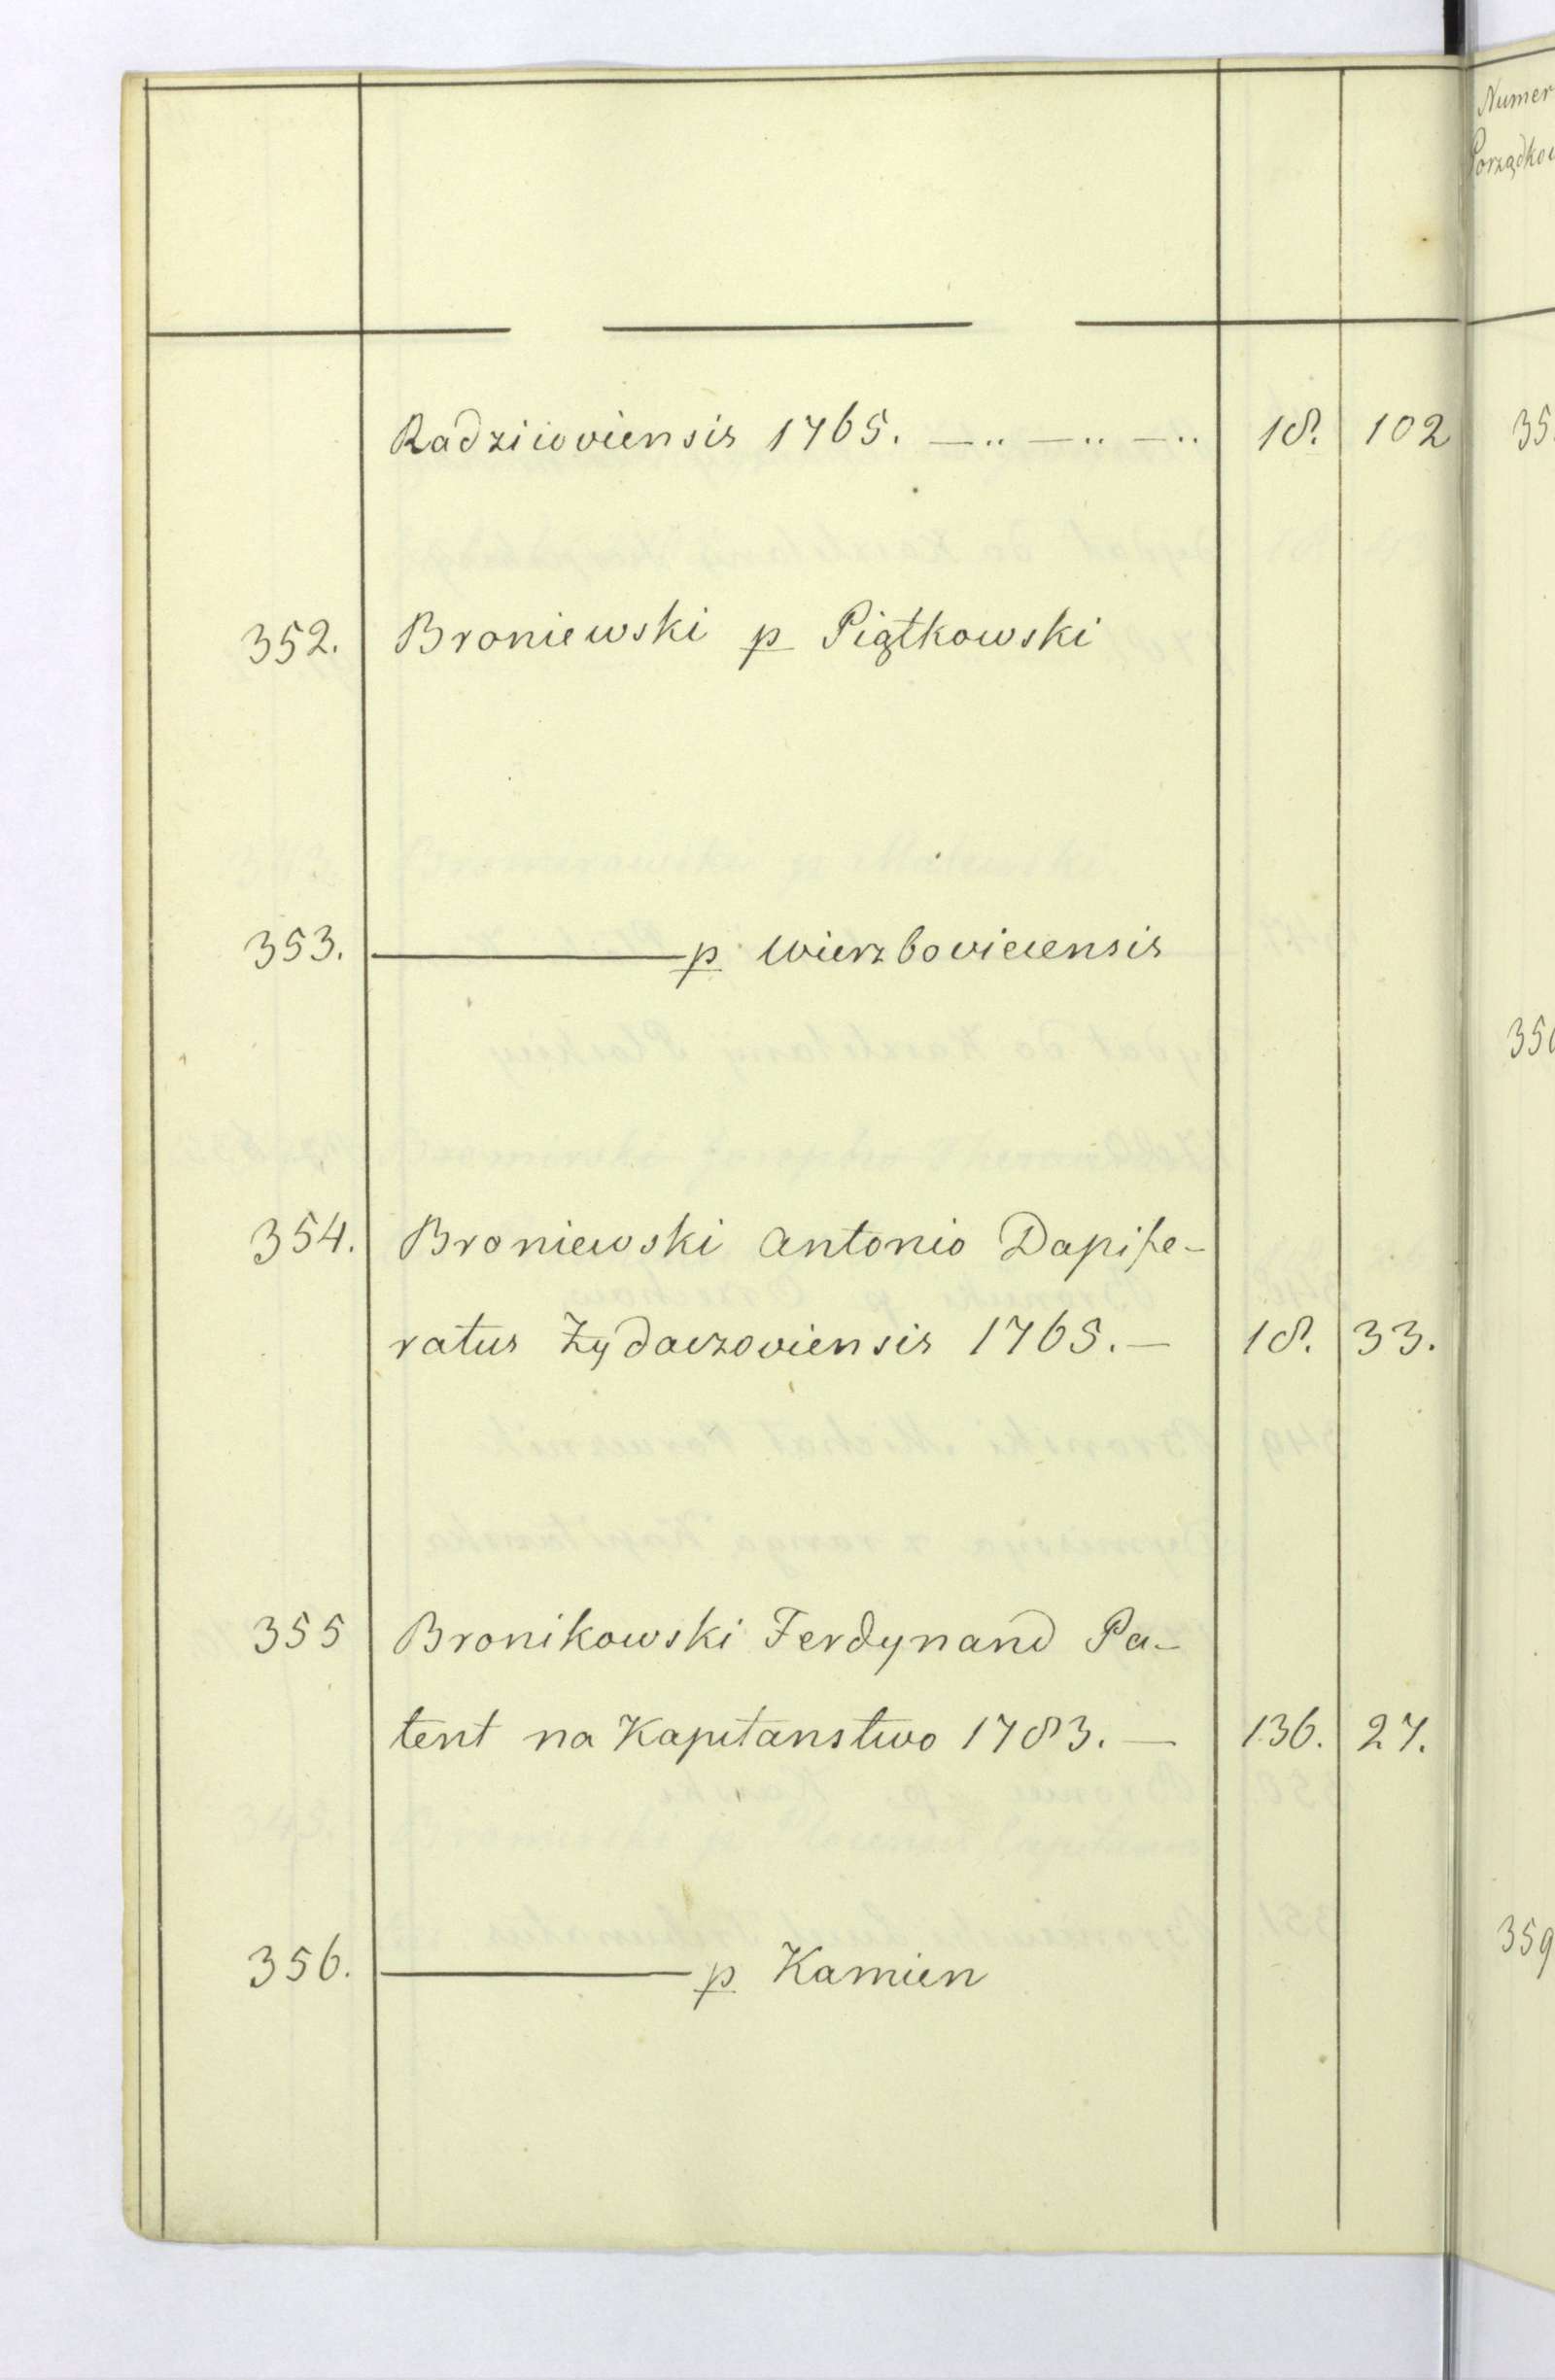 Radziwoviensis 1765. — .. — .. — .. 18. 102
352. Broniewski p Piątkowski
353. ——— p Wierzboviecensis
354. Broniewski Antonio Dapife-
ratus Żydaczoviensis 1765. — 18. 33.
355 Bronikowski Ferdynand Pa-
tent na Kapitanstwo 1783. — 136. 27.
356. ——— p Kamien
Numer
Porządkow
35
359